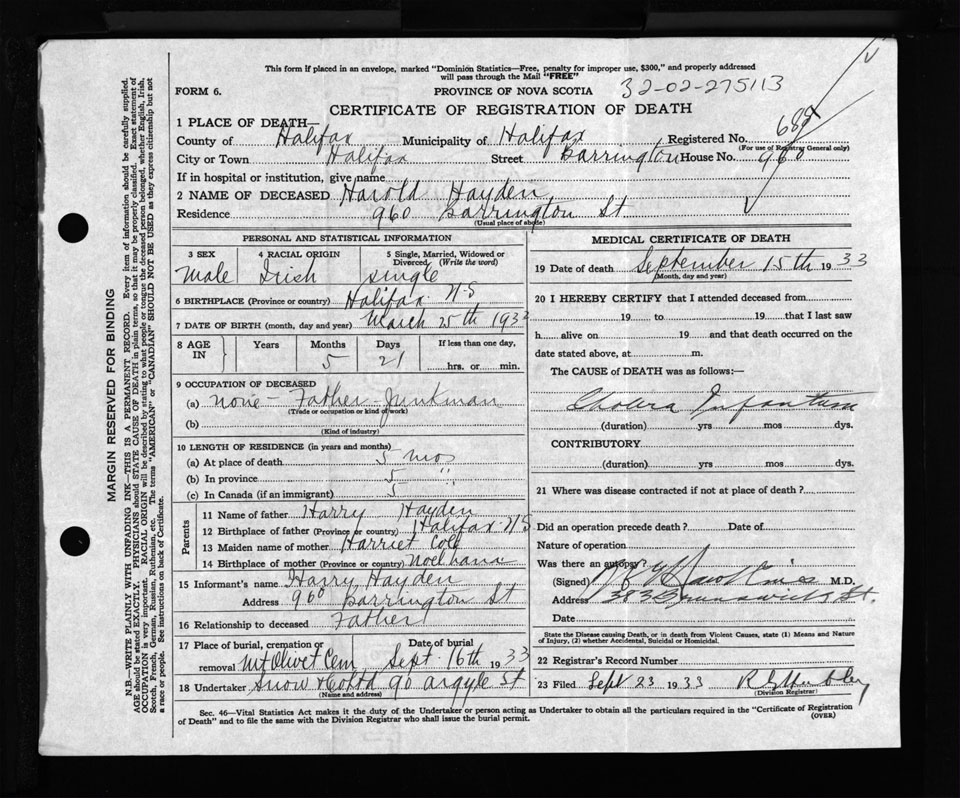 This form if placed in an envelope, marked "Dominion Statistics—Free, penalty for improper use, $300," and properly addressed
will pass through the Mail "FREE"
FORM 6. PROVINCE OF NOVA SCOTIA 32-02-275113
CERTIFICATE OF REGISTRATION OF DEATH
1 PLACE OF DEATH—
County of Halifax Municipality of Halifax Registered No.
(For use of Registrar General only)
City or Town Halifax Street Barrington House No. 960
If in hospital or institution, give name
2 NAME OF DECEASED Harold Hayden
Residence 960 Barrington St
(Usual place of abode)
PERSONAL AND STATISTICAL INFORMATION
3 SEX 4 RACIAL ORIGIN 5 Single, Married, Widowed or
Divorced (Write the word)
Male Irish single
6 BIRTHPLACE (Province or country) Halifax N-S
7 DATE OF BIRTH (month, day and year) March 25th 193
8 AGE IN Years Months Days If less than one day,
5 21 hrs. or min.
9 OCCUPATION OF DECEASED
(a) none - Father - Junkman
(Trade or occupation or kind of work)
(b)
(Kind of industry)
10 LENGTH OF RESIDENCE (in years and months)
(a) At place of death 5 mos
(b) In province 5 "
(c) In Canada (if an immigrant) 5
Parents
11 Name of father Harry Hayden
12 Birthplace of father (Province or country) Halifax N S
13 Maiden name of mother Harriet
14 Birthplace of mother (Province or country)
15 Informant's name Harry Hayden
Address 960 Barrington St
16 Relationship to deceased Father
17 Place of burial, cremation or Date of burial
removal Mt Olivet Cem Sept. 16th 1933
18 Undertaker Snow 90 Argyle St
(Name and address)
MEDICAL CERTIFICATE OF DEATH
19 Date of death September 15th 1933
(Month, day and year)
20 I HEREBY CERTIFY that I attended deceased from
19 to 19 that I last saw
h alive on 19 and that death occurred on the
date stated above, at m.
The CAUSE of DEATH was as follows:—
Cholera Infantum
(duration) yrs mos dys.
CONTRIBUTORY
(duration) yrs mos dys.
21 Where was disease contracted if not at place of death?
Did an operation precede death? Date of
Nature of operation
Was there an autopsy?
(Signed) M.D.
Address 383 Brunswick St.
Date
State the Disease causing Death, or in death from Violent Causes, state (1) Means and Nature
of Injury, (2) whether Accidental, Suicidal or Homicidal.
22 Registrar's Record Number
23 Filed Sept 23 1933
(Division Registrar)
Sec. 46—Vital Statistics Act makes it the duty of the Undertaker or person acting as Undertaker to obtain all the particulars required in the "Certificate of Registration
of Death" and to file the same with the Division Registrar who shall issue the burial permit. (OVER)
MARGIN RESERVED FOR BINDING
N.B.—WRITE PLAINLY WITH UNFADING INK—THIS IS A PERMANENT RECORD. Every item of information should be carefully supplied.
AGE should be stated EXACTLY. PHYSICIANS should STATE CAUSE OF DEATH in plain terms, so that it may be properly classified. Exact statement of
OCCUPATION is very important. RACIAL ORIGIN will be described by stating to what people or tongue the deceased person belonged, whether English, Irish,
Scotch, French, German, Russian, Ruthenian, etc. The terms "AMERICAN" or "CANADIAN" SHOULD NOT BE USED as they express citizenship but not
a race or people. See instructions on back of Certificate.